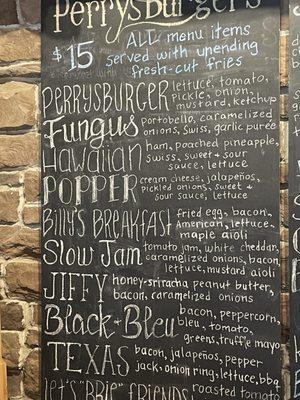 PerrysBurgers
$15 ALL menu items
served with upending
fresh-cut fries
PERRYSBURGER lettuce, tomato,
pickle, onion,
mustard, ketchup
Fungus portobello, caramelized
onions, swiss, garlic puree
Hawaiian ham, poached pineapple,
swiss, sweet + sour
sauce, lettuce
POPPER cream cheese, jalapeños,
pickled onions, sweet +
sour sauce, lettuce
Billy's BREAKFAST fried egg, bacon,
American, lettuce,
maple aioli
Slow Jam tomato jam, white cheddar,
caramelized onions, bacon,
lettuce, mustard aioli
JIFFY honey-sriracha peanut butter,
bacon, caramelized onions
Black + Bleu bacon, peppercorn,
bleu, tomato,
greens, truffle mayo
TEXAS bacon, jalapeños, pepper
jack, onion ring, lettuce, bbq
let's "BRIE" FRIENDS roasted tomato